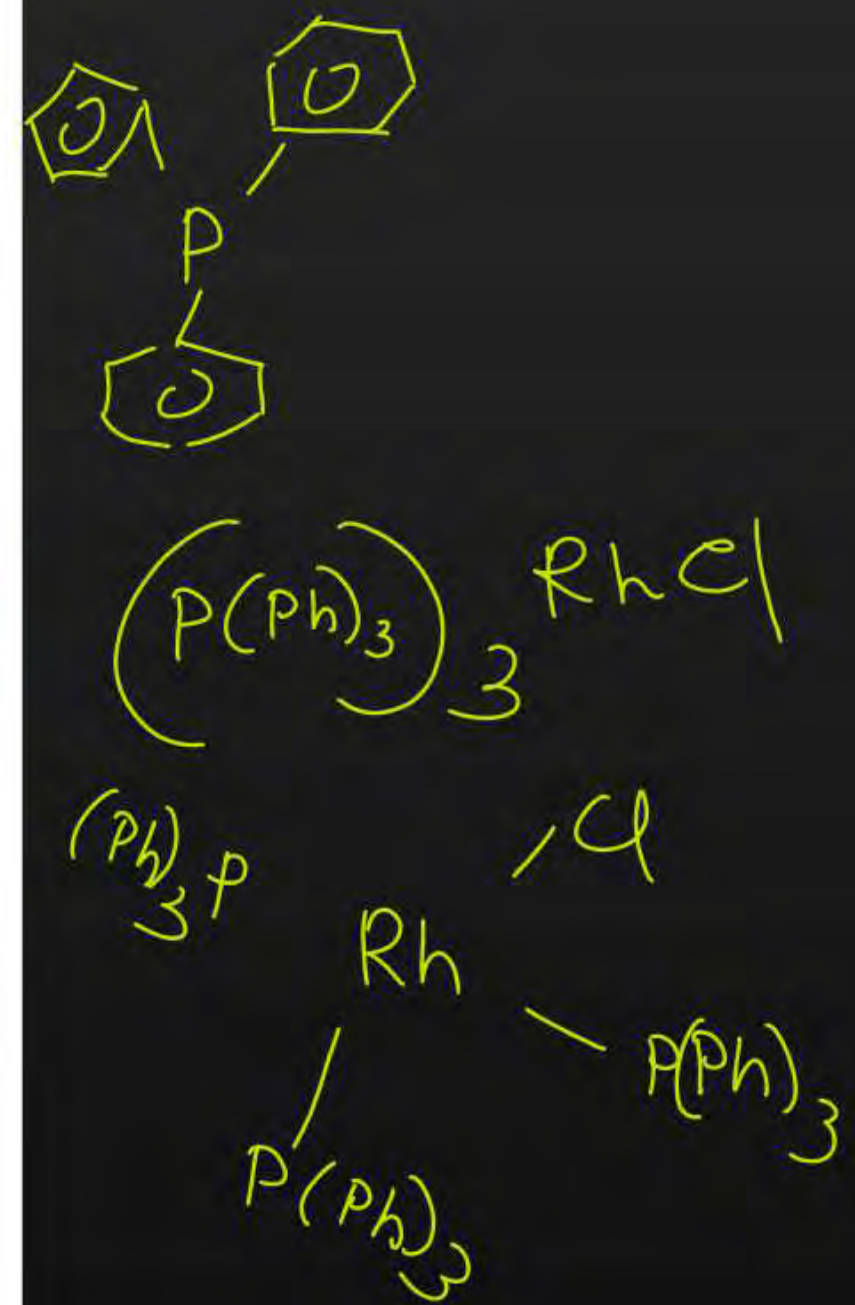 P
(P(Ph)₃)₃ RhCl
(Ph)₃P Cl
Rh
P(Ph)₃
P(Ph)₃